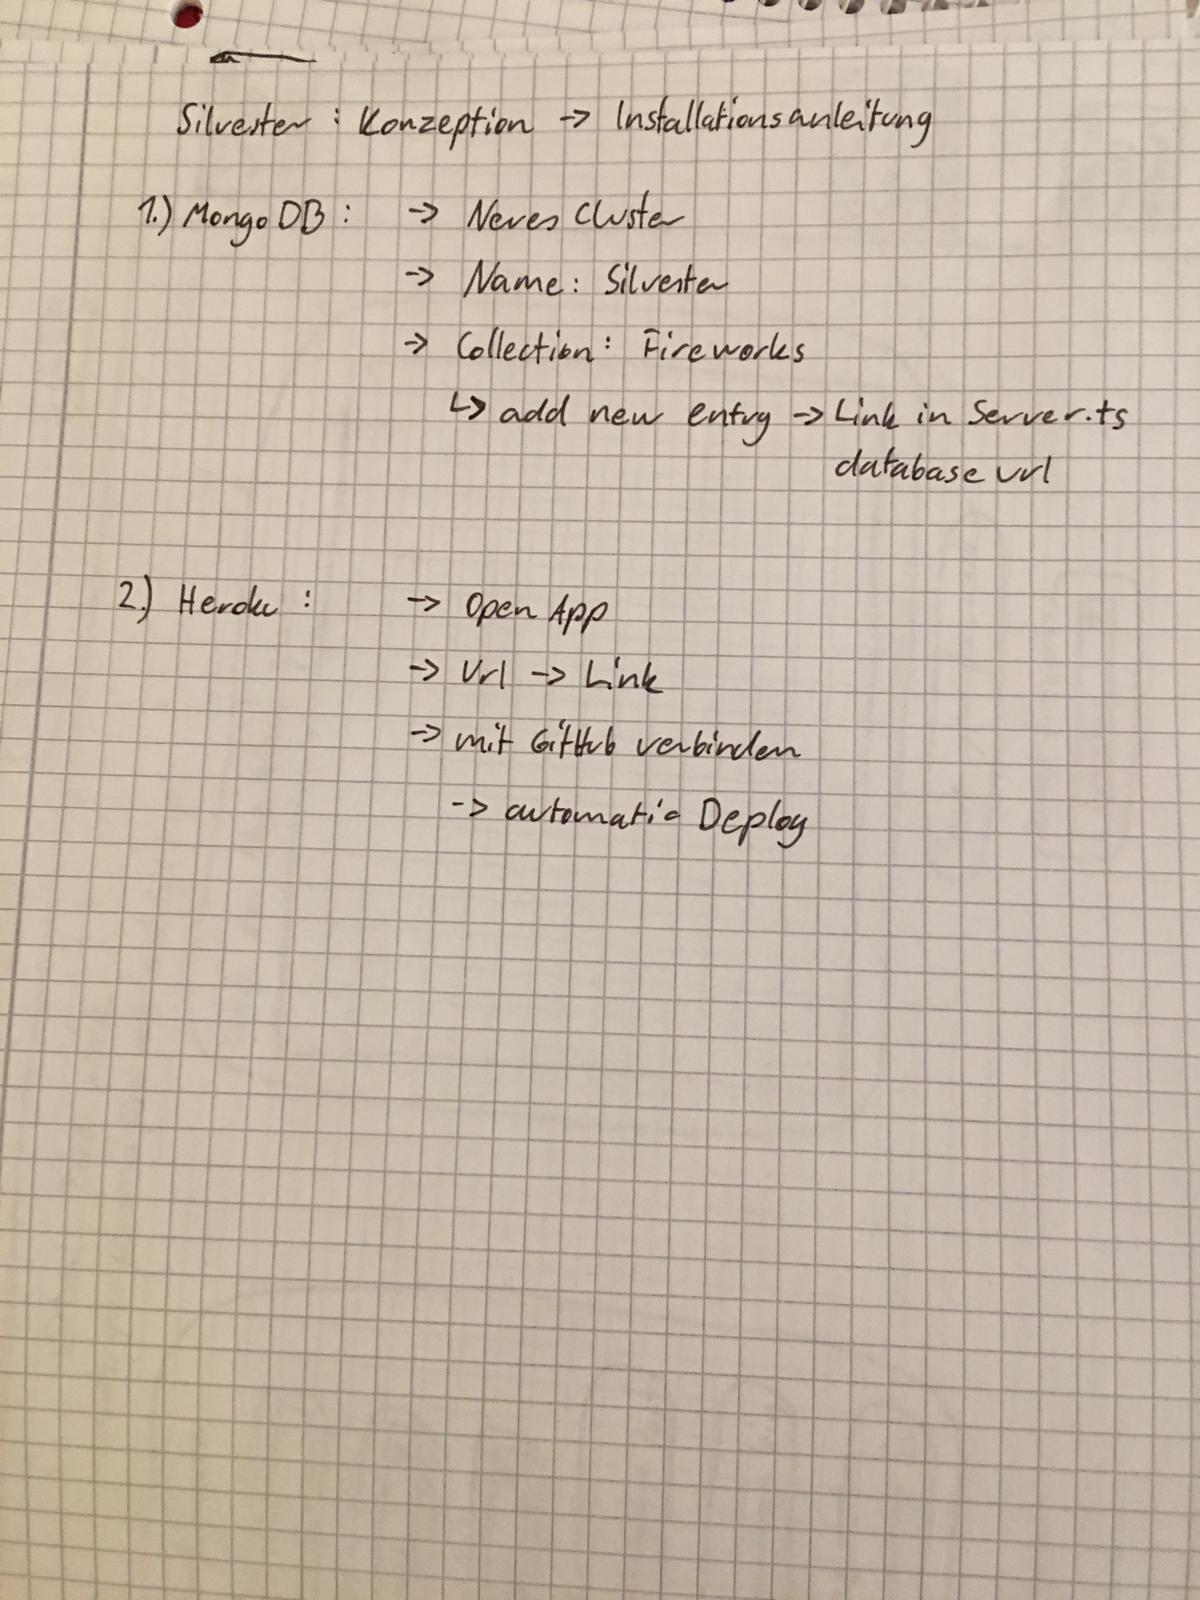 Silvester : Konzeption -> Installationsanleitung
1.) MongoDB : -> Neues Cluster
-> Name : Silvester
-> Collection : Fireworks
↳ add new entry -> Link in Server.ts
database url
2.) Heroku : -> Open App
-> Url -> Link
-> mit GitHub verbinden
-> automatic Deploy